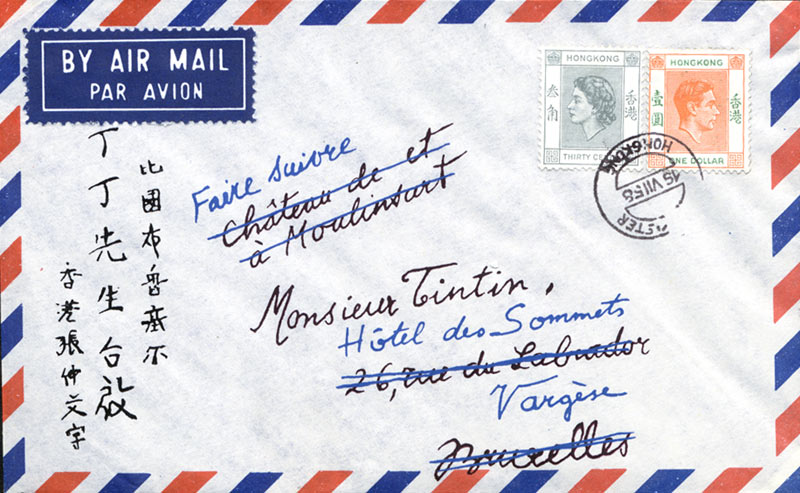 BY AIR MAIL
PAR AVION
HONGKONG
叁角
香港
THIRTY CE
HONGKONG
壹圓
香港
ONE DOLLAR
HONGKONG
VII 58
STER
比國布魯塞尔
丁丁先生台啟
香港張仲
Faire suivre
Château de et
à Moulinsart
Monsieur Tintin,
Hôtel des Sommets
26, rue du Labrador
Vargèse
Bruxelles